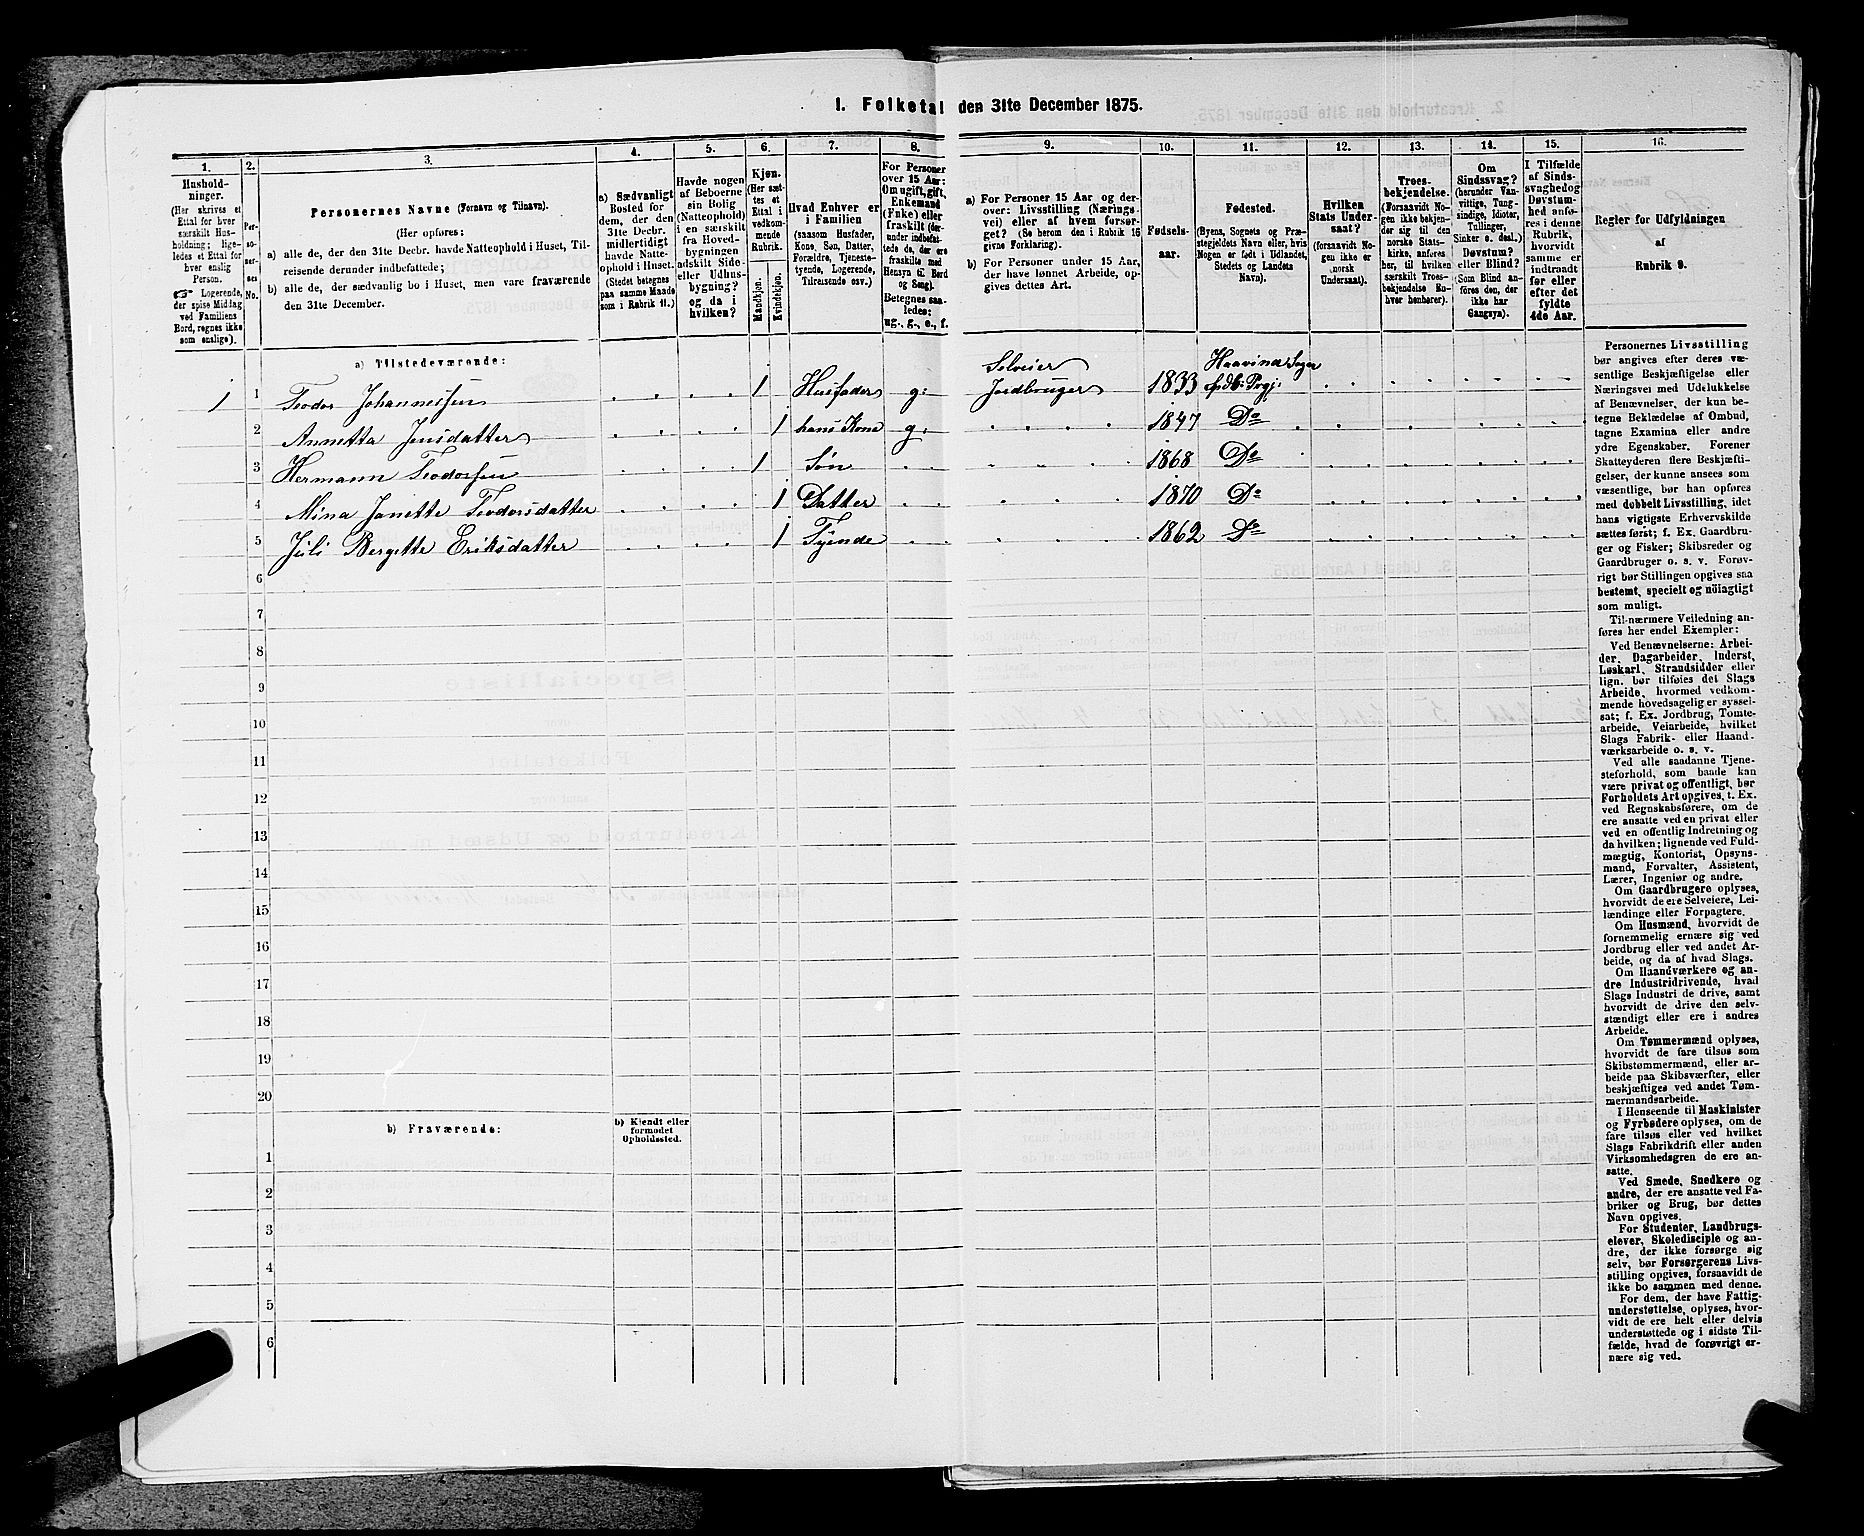 1. Folketal den 31te December 1875.
1.
2.
3.
4.
5.
6.
7.
8.
9.
10.
11.
12.
13.
14.
15.
16.
Hushold-
ninger.
(Her skrives et
Ettal for hver
særskilt Hus-
holdning; lige-
ledes et Ettal for
hver enslig
Person.
☞ Logerende,
der spise Middag
ved Familiens
Bord, regnes ikke
som enslige).
Per-
so-
ner-
nes
No.
Personernes Navne (Fornavn og Tilnavn).
(Her opføres:
a) alle de, der den 31te Decbr. havde Natteophold i Huset, Til-
reisende derunder indbefattede;
b) alle de, der sædvanlig bo i Huset, men vare fraværende
den 31te December.
a) Sædvanligt
Bosted for
dem, der den
31te Decbr.
midlertidigt
havde Natte-
ophold i Huset.
(Stedet betegnes
paa samme Maade
som i Rubrik 11.)
Havde nogen
af Beboerne
sin Bolig
(Natteophold)
i en særskilt
fra Hoved-
bygningen
adskilt Side-
eller Udhus-
bygning?
og da i
hvilken?
Kjøn.
(Her sæt-
tes et
Ettal i
vedkom-
mende
Rubrik.
Mandkjøn.
Kvindekjøn.
Hvad Enhver er
i Familien
(saasom Husfader,
Kone, Søn, Datter,
Forældre, Tjeneste-
tyende, Logerende,
Tilreisende osv.)
For Personer
over 15 Aar:
Om ugift, gift,
Enkemand
(Enke) eller
fraskilt (der-
under indbefat-
tede de, der ere
fraskilte med
Hensyn til Bord
og Seng).
Betegnes saa-
ledes:
ug., g., e., f.
a) For Personer 15 Aar og der-
over: Livsstilling (Nærings-
vei) eller af hvem forsør-
get? (Se herom den i Rubrik 16
givne Forklaring).
b) For Personer under 15 Aar,
der have lønnet Arbeide, op-
gives dettes Art.
Fødsels-
aar.
Fødested.
(Byens, Sognets og Præ-
stegjeldets Navn eller, hvis
Nogen er født i Udlandet,
Stedets og Landets
Navn).
Hvilken
Stats Under-
saat?
(forsaavidt No-
gen ikke er
norsk
Undersaat).
Troes-
bekjendelse.
(Forsaavidt No-
gen ikke bekjen-
der sig til den
norske Stats-
kirke, anføres
her, til hvilken
særskilt Troes-
bekjendelse En-
hver henhører).
Om
Sindssvag?
(herunder Van-
vittige, Tung-
sindige, Idioter,
Tullinger,
Sinker o. desl.)
Døvstum?
eller Blind?
(Som Blind an-
føres den, der
ikke har
Gangsyn).
I Tilfælde
af Sinds-
svaghed og
Døvstum-
hed anfø-
res i denne
Rubrik,
hvorvidt
samme er
indtraadt
før eller
efter det
fyldte
4de Aar.
Regler for Udfyldningen
af
Rubrik 9.
a) Tilstedeværende:
1 1 Teodor Johannesen 1 Husfader g. Selveier Jordbruger 1833 Haavind Sogn
2 Annetta Jensdatter 1 hans Kone g. 1847 Do
3 Hermann Teodorsen 1 Søn 1868 Do
4 Mina Janette Teodorsdatter 1 Datter 1870 Do
5 Juli Bergette Eriksdatter 1 Tyende 1862 Do
6
7
8
9
10
11
12
13
14
15
16
17
18
19
20
b) Fraværende:
b) Kjendt eller
formodet
Opholdssted.
1
2
3
4
5
6
Personernes Livsstilling
bør angives efter deres væ-
sentlige Beskjæftigelse eller
Næringsvei med Udelukkelse
af Benævnelser, der kun be-
tegne Beklædelse af Ombud,
tagne Examina eller andre
ydre Egenskaber. Forener
Skatteyderen flere Beskjæfti-
gelser, der kunne ansees som
væsentlige, bør han opføres
med dobbelt Livsstilling, idet
hans vigtigste Erhvervskilde
sættes først; f. Ex. Gaardbru-
ger og Fisker; Skibsreder og
Gaardbruger o. s. v. Forøv-
rigt bør Stillingen opgives saa
bestemt, specielt og nöiagtigt
som muligt.
Til nærmere Veiledning an-
føres her endel Exempler:
Ved Benævnelserne: Arbei-
der, Dagarbeider, Inderst,
Løskarl, Strandsidder eller
lign. bør tilføies det Slags
Arbeide, hvormed vedkom-
mende hovedsagelig er syssel-
sat; f. Ex. Jordbrug, Tomte-
arbeide, Veiarbeide, hvilket
Slags Fabrik- eller Haand-
værksarbeide o. s. v.
Ved alle saadanne Tjene-
steforhold, som baade kan
være privat og offentligt, bør
Forholdets Art opgives, t. Ex.
ved Regnskabsførere, om de
ere ansatte ved en privat eller
ved en offentlig Indretning og
da hvilken; lignende ved Fuld-
mægtig, Kontorist, Opsyns-
mand, Forvalter, Assistent,
Lærer, Ingeniør og andre.
Om Gaardbrugere oplyses,
hvorvidt de ere Selveiere, Lei-
lændinge eller Forpagtere.
Om Husmænd, hvorvidt de
fornemmelig ernære sig ved
Jordbrug eller ved andet Ar-
beide, og da af hvad Slags.
Om Haandværkere og an-
dre Industridrivende, hvad
Slags Industri de drive, samt
hvorvidt de drive den selv-
stændigt eller ere i andres
Arbeide.
Om Tømmermænd oplyses,
hvorvidt de fare tilsøs som
Skibstømmermænd, eller ar-
beide paa Skibsværfter, eller
beskjæftiges ved andet Tøm-
mermandsarbeide.
I Henseende til Maskinister
og Fyrbødere oplyses, om de
fare tilsøs eller ved hvilket
Slags Fabrikdrift eller anden
Virksomhedsgren de ere an-
satte.
Ved Smede, Snedkere og
andre, der ere ansatte ved Fa-
briker og Brug, bør dettes
Navn opgives.
For Studenter, Landbrugs-
elever, Skoledisciple og an-
dre, der ikke forsørge sig
selv, bør Forsørgerens Livs-
stilling opgives, forsaavidt de
ikke bo sammen med denne.
For dem, der have Fattig-
understøttelse, oplyses, hvor-
vidt de ere helt eller delvis
understøttede og i sidste Til-
fælde, hvad de forøvrigt er-
nære sig ved.